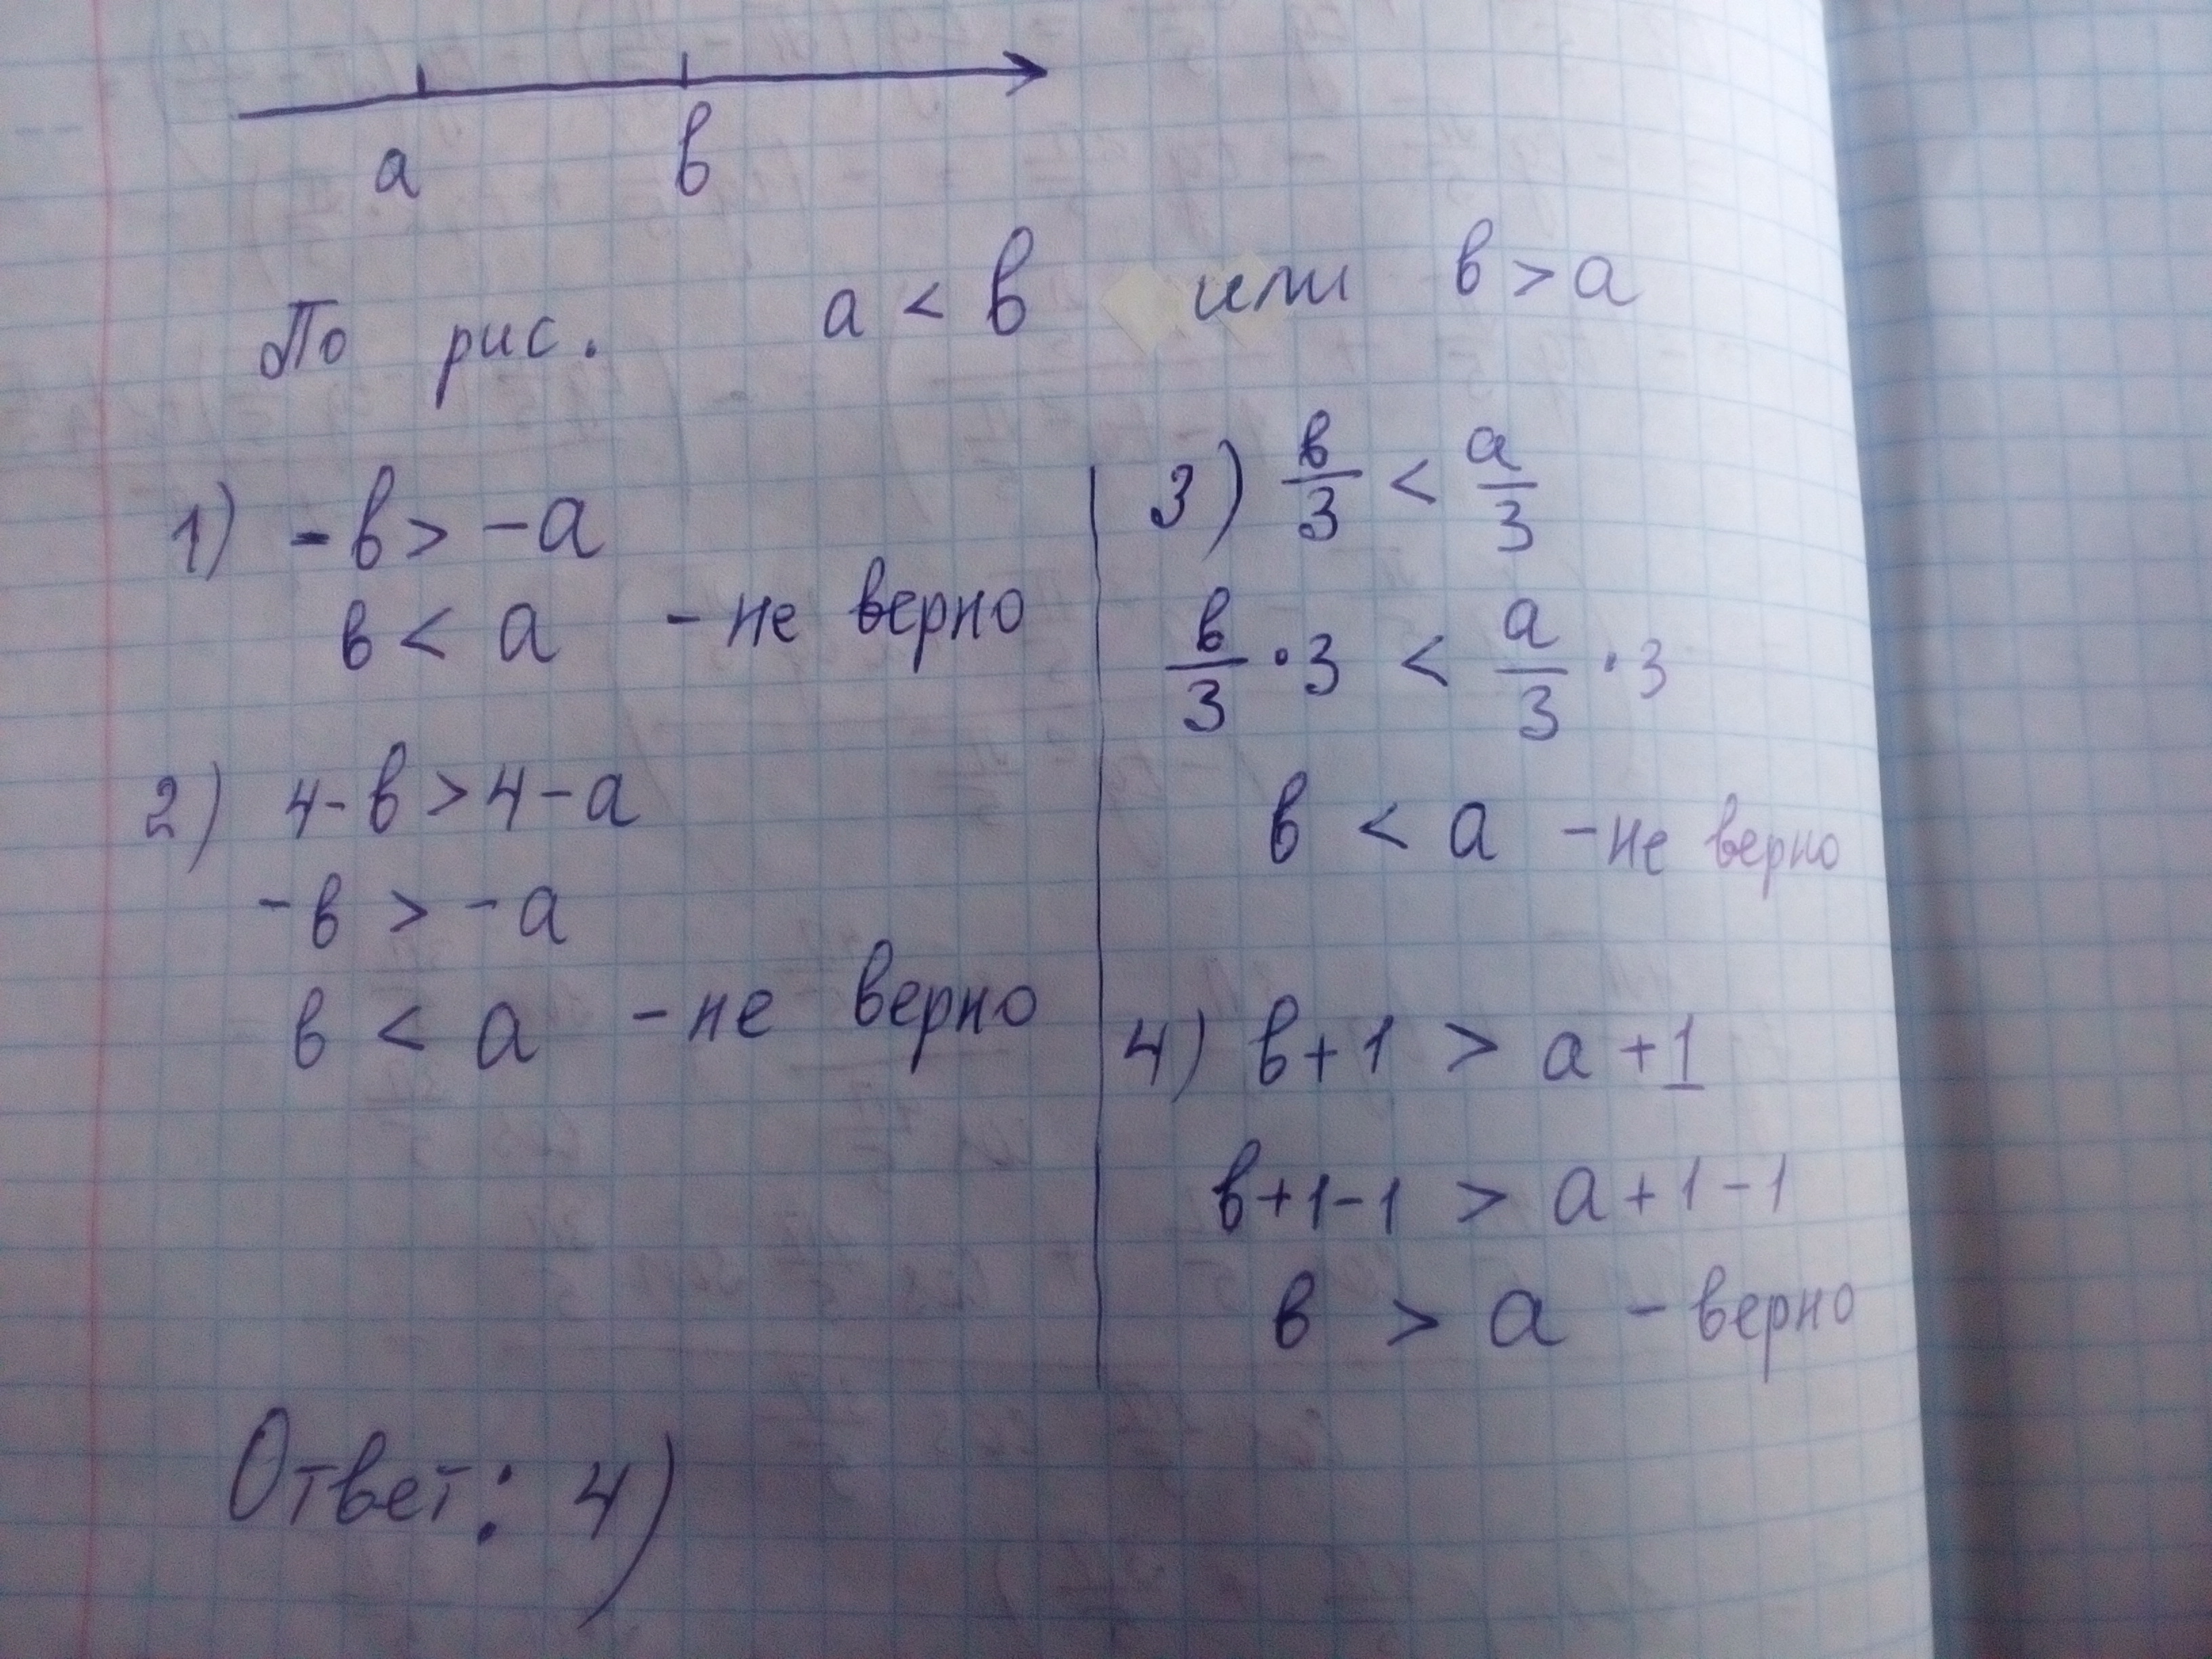 а в
По рис. а < в или в > а
1) -в > -а
в < а - не верно
2) 4-в > 4-а
-в > -а
в < а - не верно
3) в/3 < а/3
в/3 · 3 < а/3 · 3
в < а - не верно
4) в+1 > а+1
в+1-1 > а+1-1
в > а - верно
Ответ: 4)